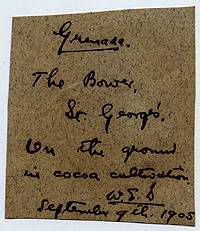 Grenada.
The Bower,
St. George's.
On the ground
in cocoa cultivation.
W. E. B
September 9th. 1905